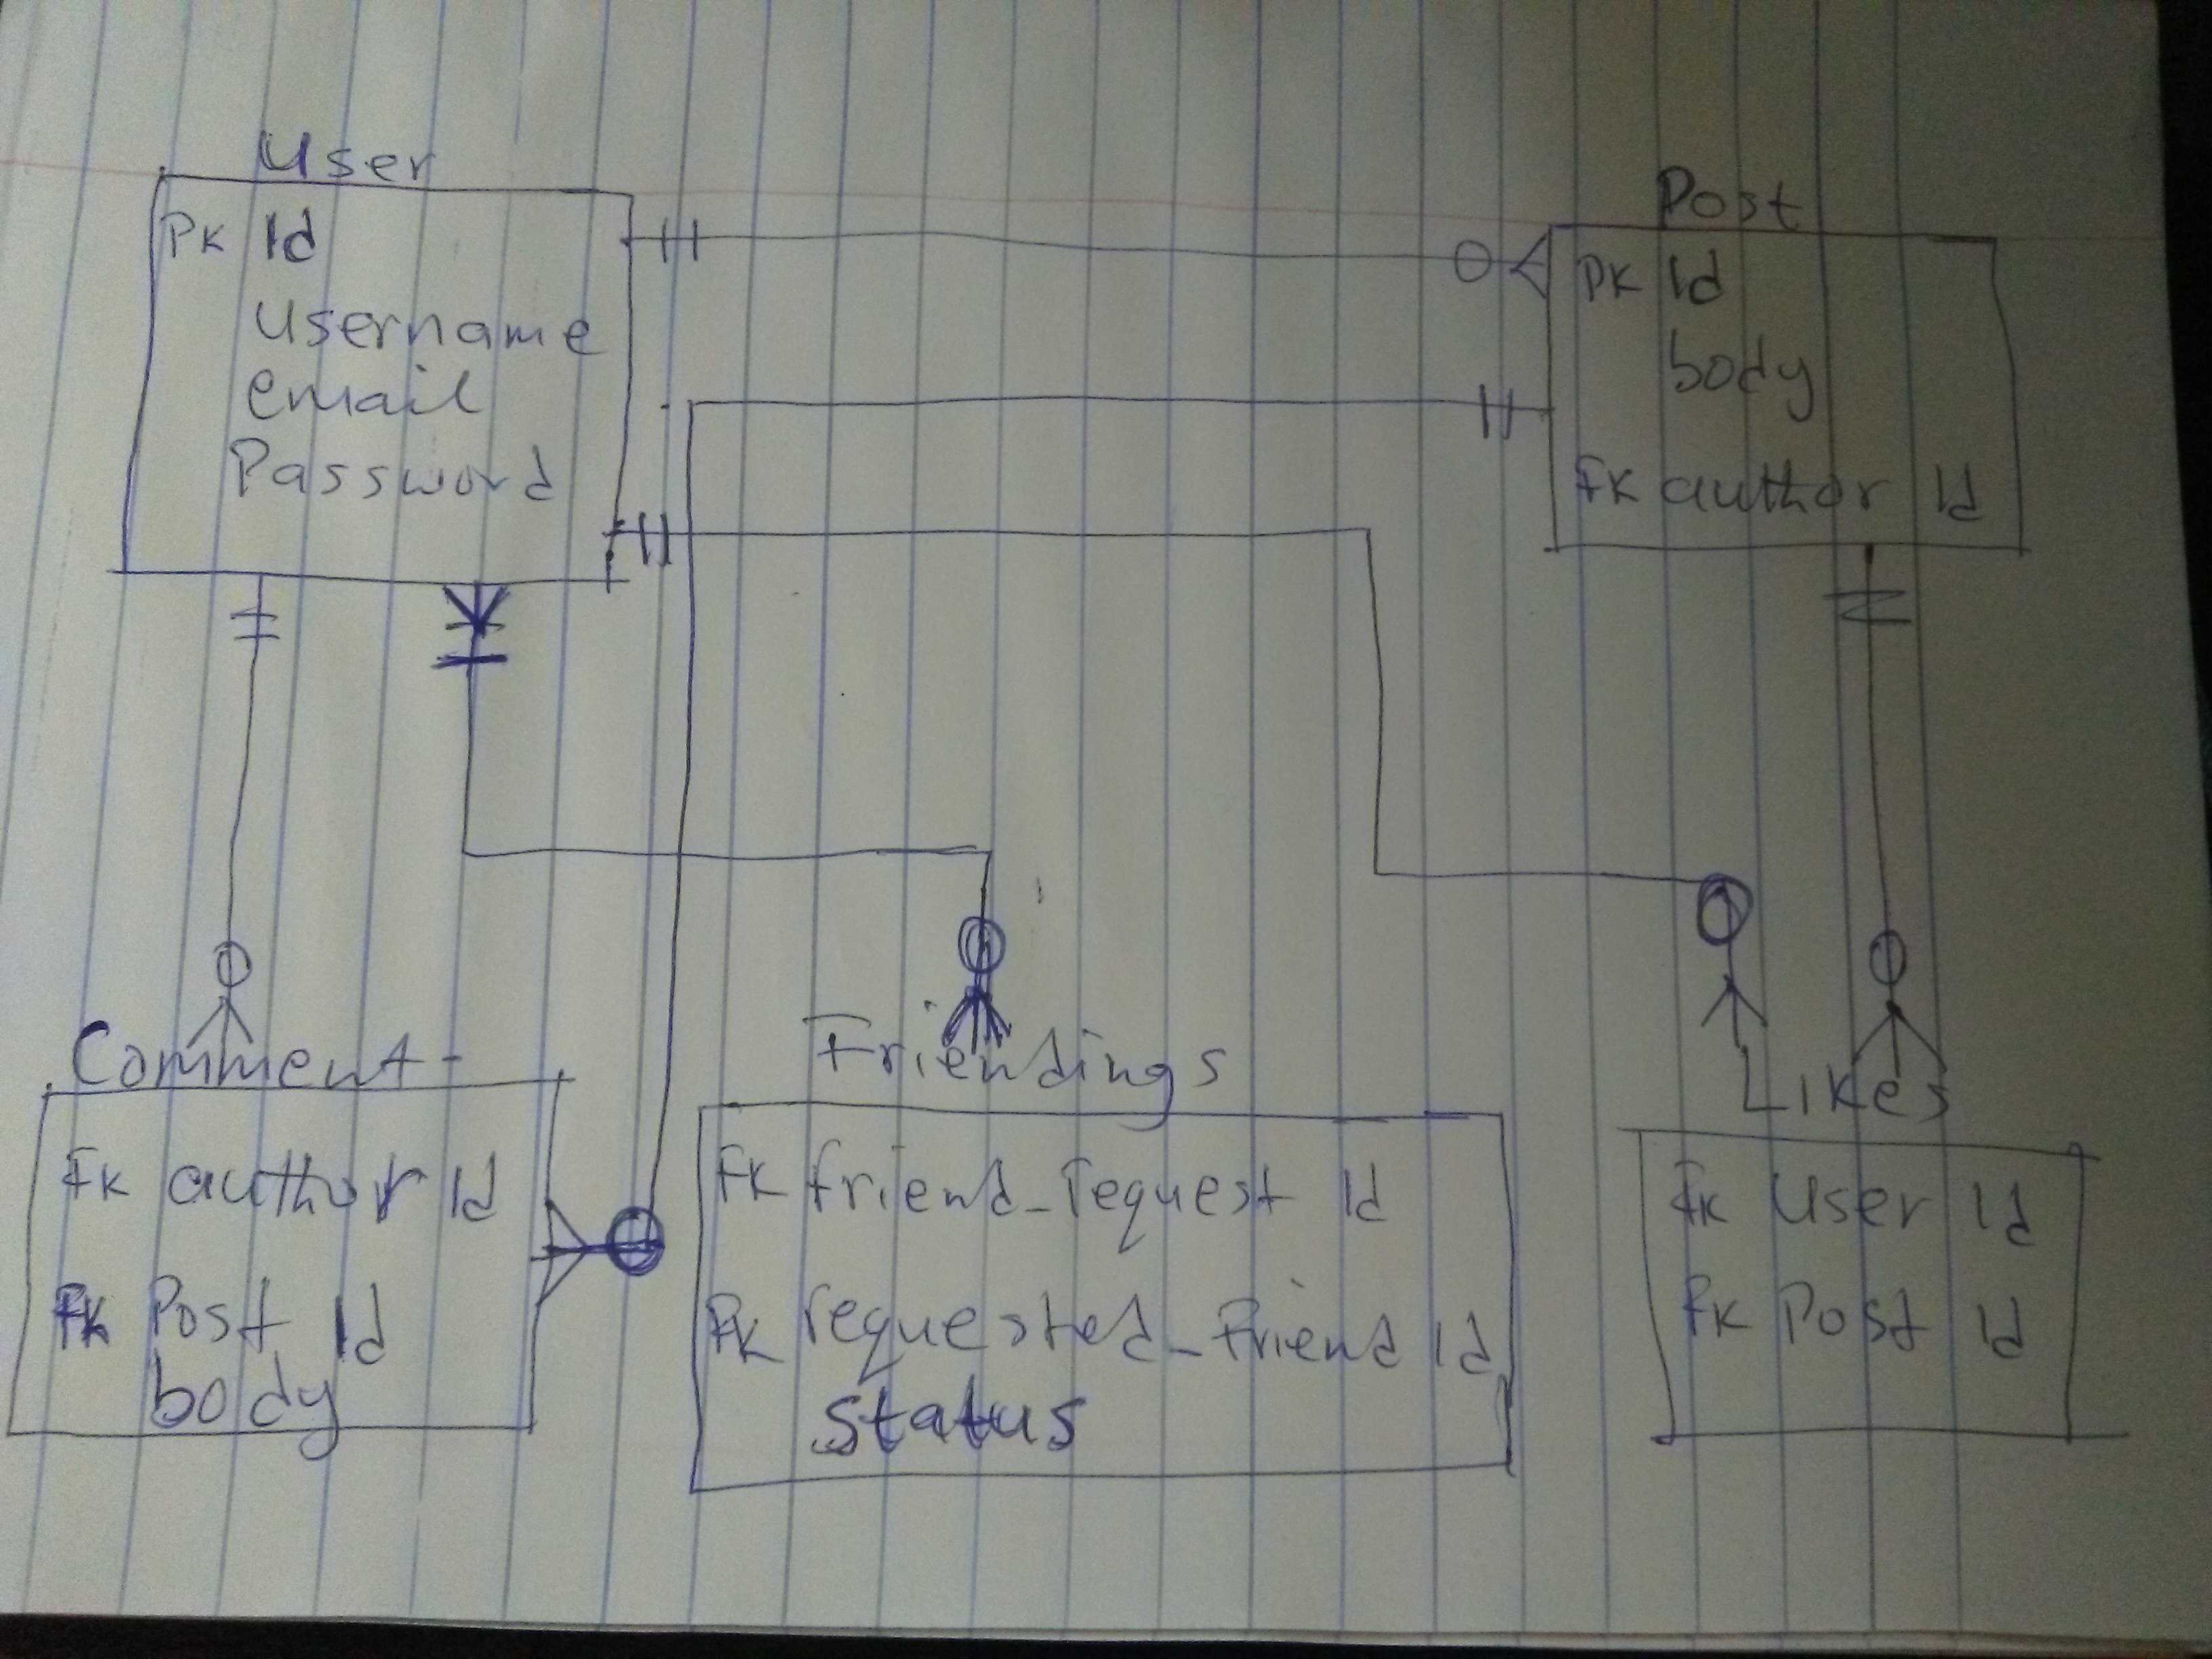 User
PK Id
Username
email
Password
Post
PK Id
body
FK author Id
Comment
FK author Id
FK Post Id
body
Friendings
FK friend_request Id
FK requested_Friend Id
status
Likes
FK User Id
FK Post Id